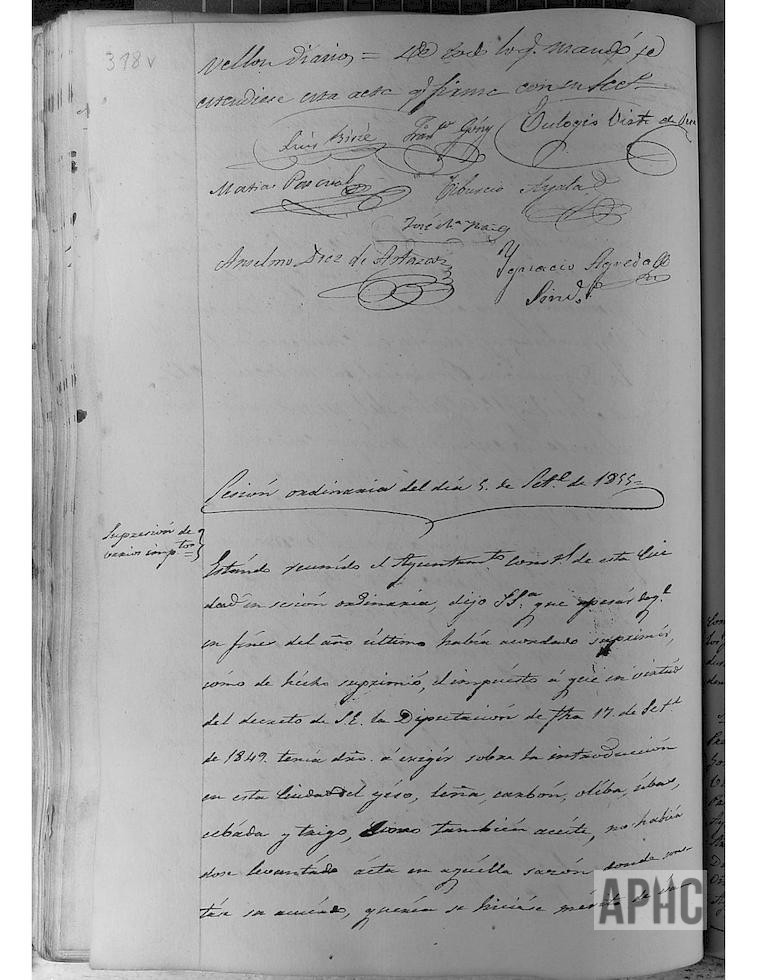 398v
vellon diarios = De todo lo q. mandó se
estendiese esta acta q. firma con su Sect.
Luis Franco Góny Eulogio Viste de
Matias Pascual Tiburcio Ayala
José Ma Puig
Anselmo Diez de Artazcoz Ygnacio Agreda
Sind.
Sesión ordinaria del dia 5. de Set.e de 1855=
Supresión de
varios imp.tos=
Estándo reunído el Ayuntam.to const.l de esta Ciu
dad en sesión ordinaria, dijo SSa. que apesár de q.e
en fines del año último había acordado suprimír,
como de hécho suprimió, el impuésto á que en virtúd
del decreto de S.E. la Diputación de fha 17. de Set.e
de 1849. tenía dro. á exigír sobre la introducción
en esta Ciudad del yéso, leña, carbón, olíba, úbas,
cebáda y trigo, como también acéite, no habién
dose levantádo ácta en aquélla sazón donde cons-
táse su acuérdo, quería se hiciése mérito de
APHC